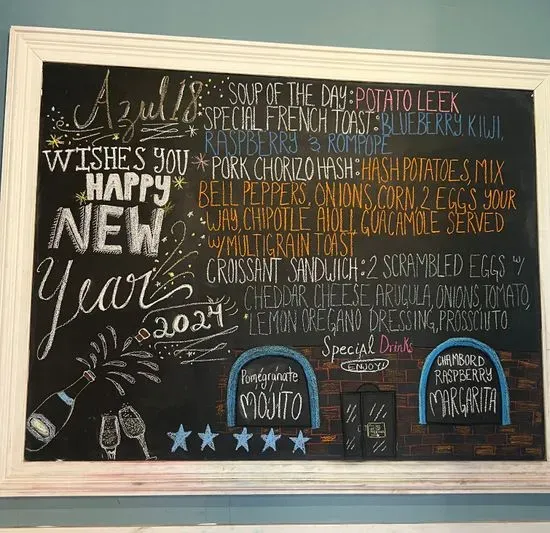 Azul 18
WISHES YOU
HAPPY
NEW
Year
2024
SOUP OF THE DAY: POTATO LEEK
SPECIAL FRENCH TOAST: BLUEBERRY, KIWI,
RASPBERRY 3 ROMPOPE
* PORK CHORIZO HASH: HASH POTATOES, MIX
BELL PEPPERS, ONIONS, CORN, 2 EGGS YOUR
WAY, CHIPOTLE AIOLI, GUACAMOLE SERVED
W/MULTIGRAIN TOAST
CROISSANT SANDWICH: 2 SCRAMBLED EGGS W/
CHEDDAR CHEESE, ARUGULA, ONIONS, TOMATO,
LEMON OREGANO DRESSING, PROSSCIUTO
Special Drinks
ENJOY!
Pomegranate
MOJITO
CHAMBORD
RASPBERRY
MARGARITA